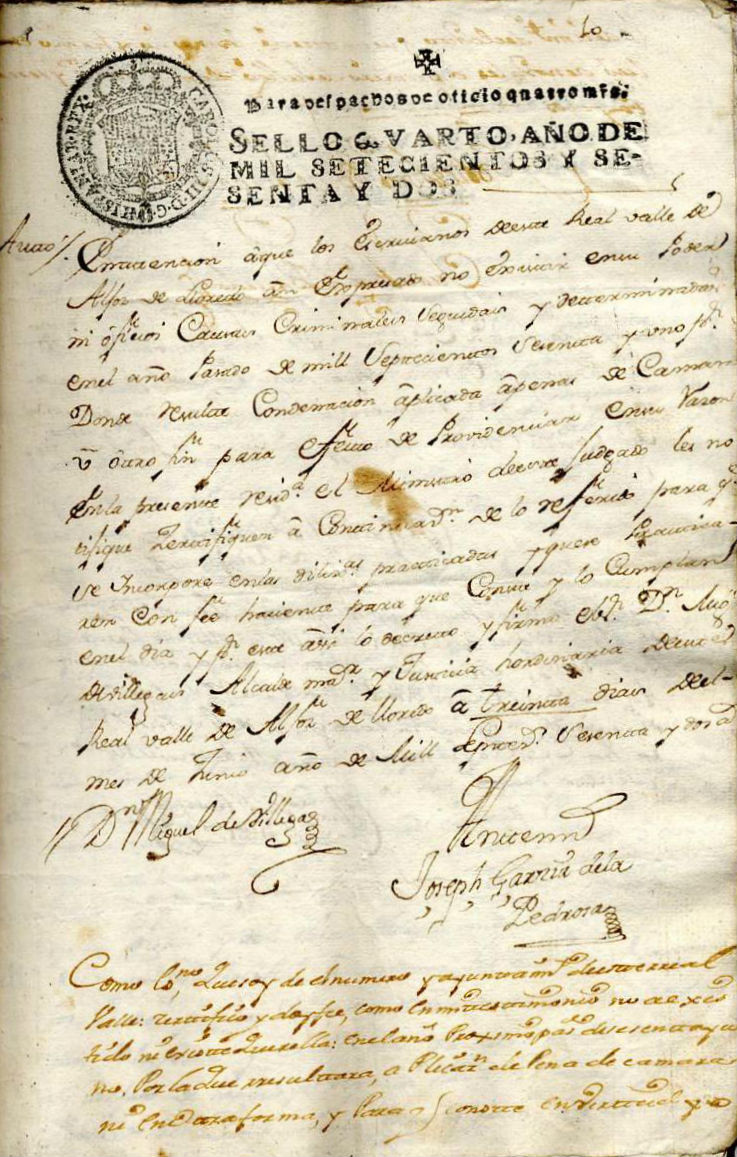 10
Para despachos de oficio quatro mrs.
SELLO QVARTO, AÑO DE
MIL SETECIENTOS Y SE-
SENTA Y DOS
CAROLUS III D.G. HISPANIAR. REX
Auto//. En atencion â que los Escrivanos de este Real valle de
Alfoz de Lloredo an Expresado no Existir en su Poder
ni ofizios Causas Criminales Seguidas y determinadas
en el año Pasado de mill Septecientos Sesenta y uno pr.
Donde resulte Condenacion âplicada âpenas de Camara
v ôtro fin para Efecto de Providenciar en su Razon
En la presente resida. el Ministro de este Judgado les no
tifique Zertifiquen â Continuadn. de lo referido para qe.
se Incorpore en las dilizas. practicadas y que se practica-
ren Con fee haciente para que Conste y lo Cumplan
en el dia y pr. este asi lo decreto y firmo el Sr. Dn. Migl.
de Villegas Alcalde mr. y Justicia hordinaria de este
Real valle de Alfoz de lloredo â treinta dias del-
mes de Junio año de Mill Septeds. Sesenta y dos as
Dn. Miguel de Villegas
Antemi
Joseph Garzia de la
Pedrosa
Como Esno. que soy de el numero y ayuntamto. de este real
Valle: zertifico y doy fee, como en mi testimonio no a exis
tido ni existe querella: en el año Proximo pdo. de sesenta y u
no, Por la que rresultara, aPlicazn. de Pena de camara
ni en otra forma, y Para q conste en virtud